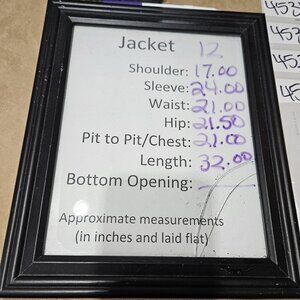 Jacket 12
Shoulder: 17.00
Sleeve: 24.00
Waist: 21.00
Hip: 21.50
Pit to Pit/Chest: 21.00
Length: 32.00
Bottom Opening:
Approximate measurements
(in inches and laid flat)